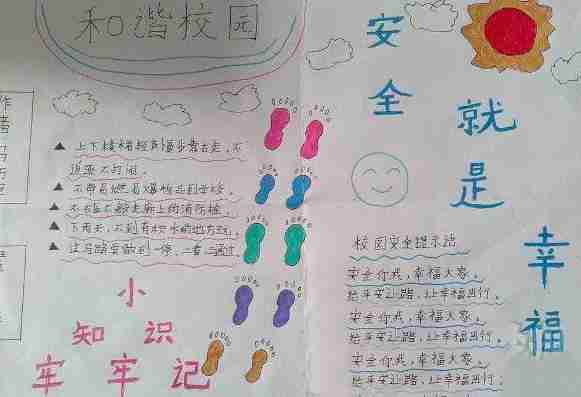 和谐校园
▲ 上下楼梯轻声慢步靠右走,不
追逐不打闹。
▲ 不带易燃易爆物品到学校。
▲ 下雨天,不到有积水的地方玩。
▲ 过马路要做到一停、二看、三通过。
小
知识
牢牢记
安全
就是
幸福
校园安全提示语
安全你我,幸福大家。
给平安让路,让幸福出行。
安全你我,幸福大家。
给平安让路,让幸福出行。
安全你我,幸福大家。
给平安让路,让幸福出行。